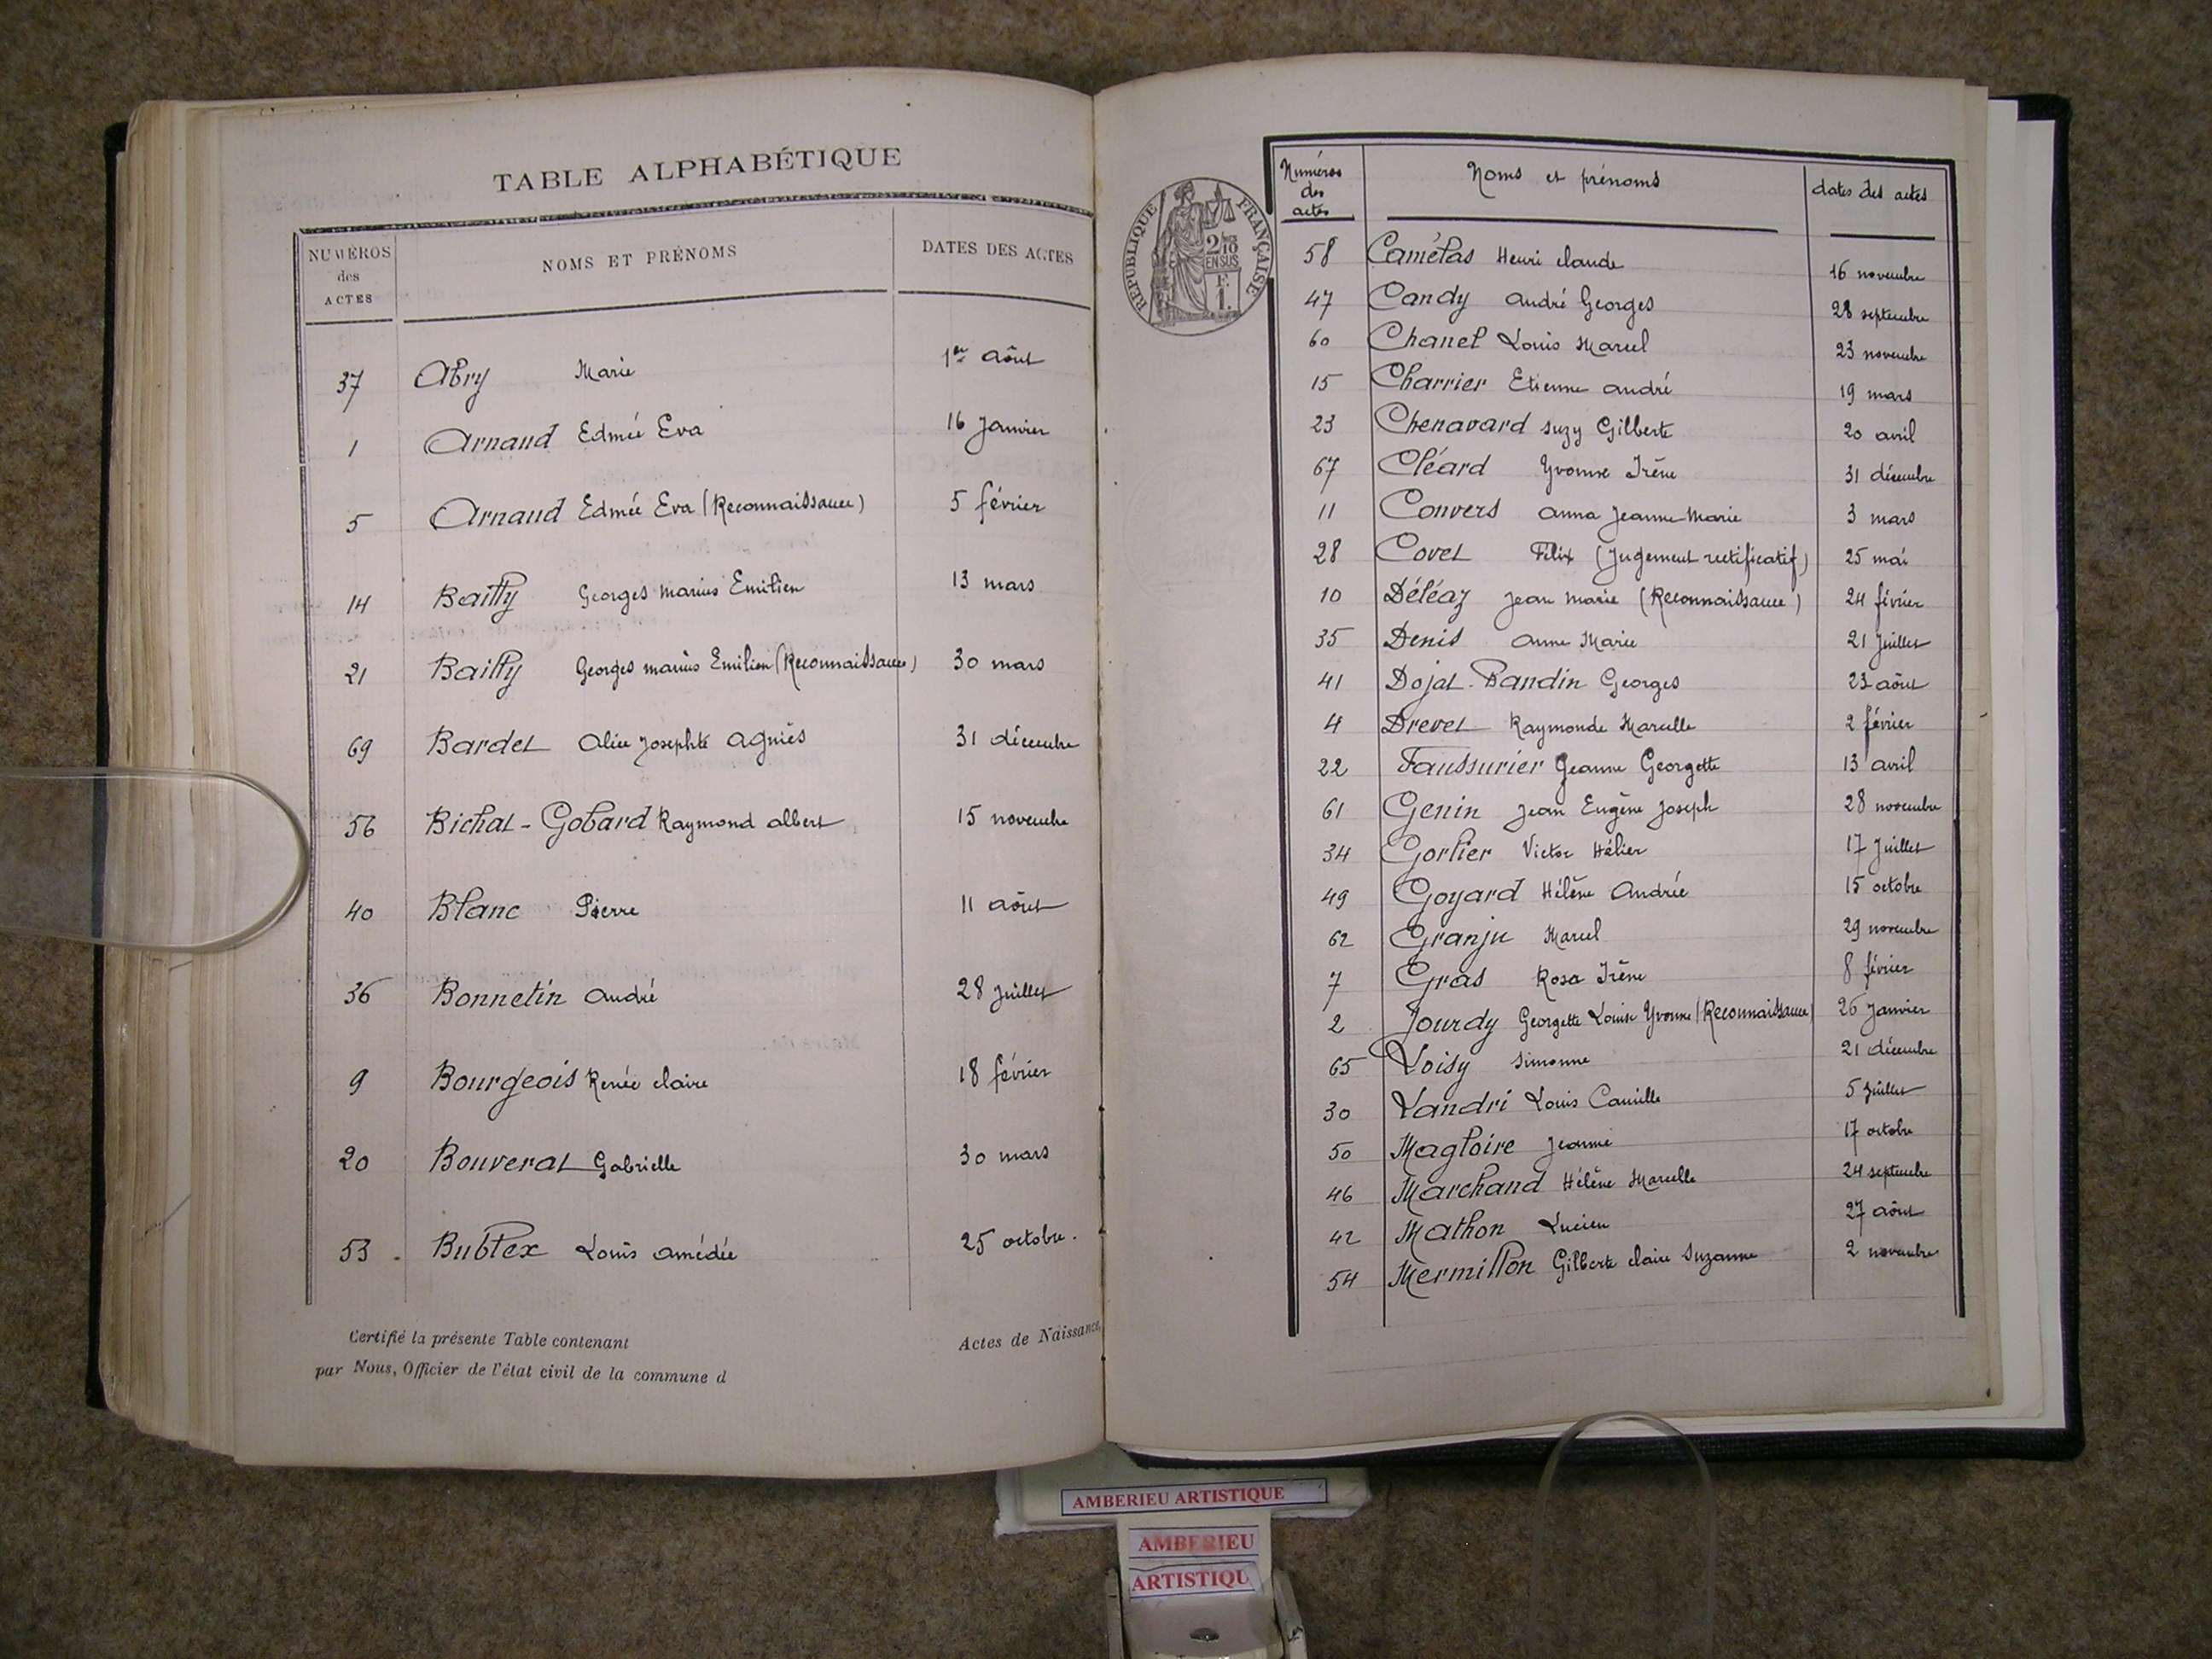 TABLE ALPHABÉTIQUE
NUMÉROS des ACTES NOMS ET PRÉNOMS DATES DES ACTES
37 Abry Marie 1er août
1 Arnaud Edmée Eva 16 Janvier
5 Arnaud Edmée Eva (Reconnaissance) 5 février
14 Bailly Georges Marius Emilien 13 mars
21 Bailly Georges Marius Emilien (Reconnaissance) 30 mars
69 Bardet Alice Josephte Agnès 31 décembre
56 Bichat-Gobard Raymond Albert 15 novembre
40 Blanc Pierre 11 août
36 Bonnetin André 28 Juillet
9 Bourgeois Renée Claire 18 février
20 Bouverat Gabrielle 30 mars
53 Bublex Louis Amédée 25 octobre.
Certifié la présente Table contenant Actes de Naissance,
par Nous, Officier de l'état civil de la commune d
RÉPUBLIQUE FRANÇAISE
2/10
EN SUS
F.
1.
Numéros des actes Noms et prénoms dates des actes
58 Camélas Henri Claude 16 novembre
47 Candy André Georges 28 septembre
60 Chanel Louis Marcel 23 novembre
15 Charrier Etienne André 19 mars
23 Chenavard Suzy Gilberte 20 avril
67 Cléard Yvonne Irène 31 décembre
11 Convers Anna Jeanne Marie 3 mars
28 Covet Félix (Jugement rectificatif) 25 mai
10 Déléaz Jean Marie (Reconnaissance) 24 février
35 Denis Anne Marie 21 Juillet
41 Dojat-Pandin Georges 23 août
4 Drevet Raymonde Marcelle 2 février
22 Faussurier Jeanne Georgette 13 avril
61 Genin Jean Eugène Joseph 28 novembre
34 Gorlier Victor Hélier 17 Juillet
49 Goyard Hélène Andrée 15 octobre
62 Granju Marcel 29 novembre
7 Gras Rosa Irène 8 février
2 Jourdy Georgette Louise Yvonne (Reconnaissance) 26 Janvier
65 Loisy Simonne 21 décembre
30 Landri Louis Camille 5 Juillet
50 Magloire Jeanne 17 octobre
46 Marchand Hélène Marcelle 24 septembre
42 Mathon Lucien 27 août
54 Mermillon Gilberte Claire Suzanne 2 novembre
AMBERIEU ARTISTIQUE
AMBERIEU
ARTISTIQU